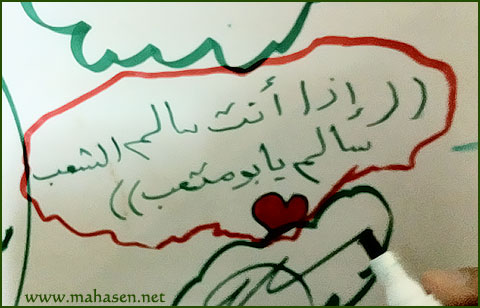 ((إذا أنت سالم الشعب
سالم يا بو متعب))
www.mahasen.net